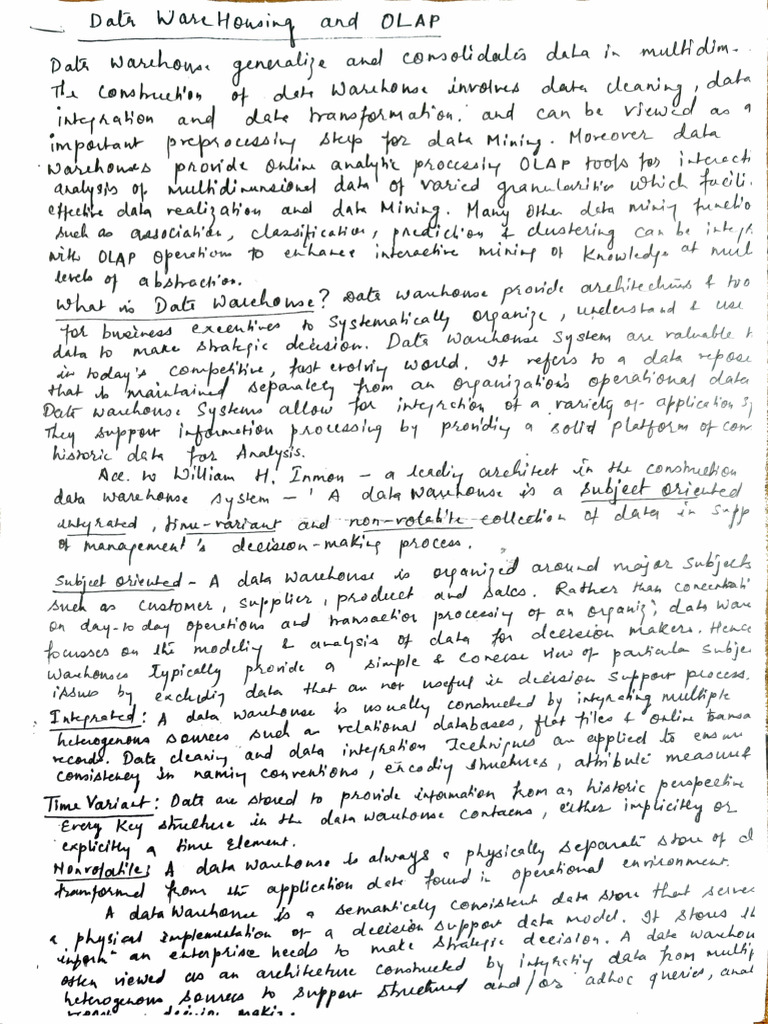 Data WareHousing and OLAP
Data Warehouse generalize and consolidates data in multidim-
The construction of data Warehouse involves data cleaning, data
integration and data transformation. and can be viewed as a
important preprocessing step for data Mining. Moreover data
Warehouses provide online analytic processing OLAP tools for interacti
analysis of multidimensional data of varied granularities which facili.
effective data realization and data Mining. Many other data mining functio
such as association, classification, prediction & clustering can be integr
with OLAP operations to enhance interactive mining of Knowledge at mul
levels of abstraction.
What is Data Warehouse? Data warehouse provide architectures & too
for business executives to systematically organize, understand & use
data to make strategic decision. Data Warehouse System are valuable t
in today's competitive, fast evolving world. It refers to a data repose
that is maintained separately from an organizations operational data
Data warehouse Systems allow for integration of a variety of application Sy
They support information processing by providing a solid platform of con
historic data for Analysis.
Acc. to William H. Inmon - a leading architect in the construction
data warehouse system - ' A data warehouse is a subject oriented
integrated, time-variant and non-volatile collection of data in supp
of management's decision-making process.
Subject oriented - A data warehouse is organized around major subjects
such as customer, supplier, product and sales. Rather than concentrati
on day-to day operations and transaction processing of an organiz", data ware
focusses on the modeling & analysis of data for decision makers. Hence
Warehouses typically provide a simple & concise view of particular subje
issues by excludig data that are not useful in decision support process.
Integrated: A data warehouse is usually constructed by integrating multiple
heterogenous sources such as relational databases, flat files & online transa
records. Data cleaning and data integration Techniques are applied to ensure
consistency in naming conventions, encodig structures, attribute measures
Time Variant: Data are stored to provide information from an historic perspective
Every Key structure in the data warehouse contains, either implicitly or
explicitly a time Element.
Nonvolatile: A data warehouse is always a physically separate store of d
transformed from the application data found in operational environment.
A data Warehouse is a semantically consistent data store that serves
a physical implementation of a decision support data model. It stores th
inform" an enterprise needs to make strategic decision. A data warehou
often viewed as an architecture constructed by integratig data from multip
heterogenous sources to support structured and/or adhoc queries, anal